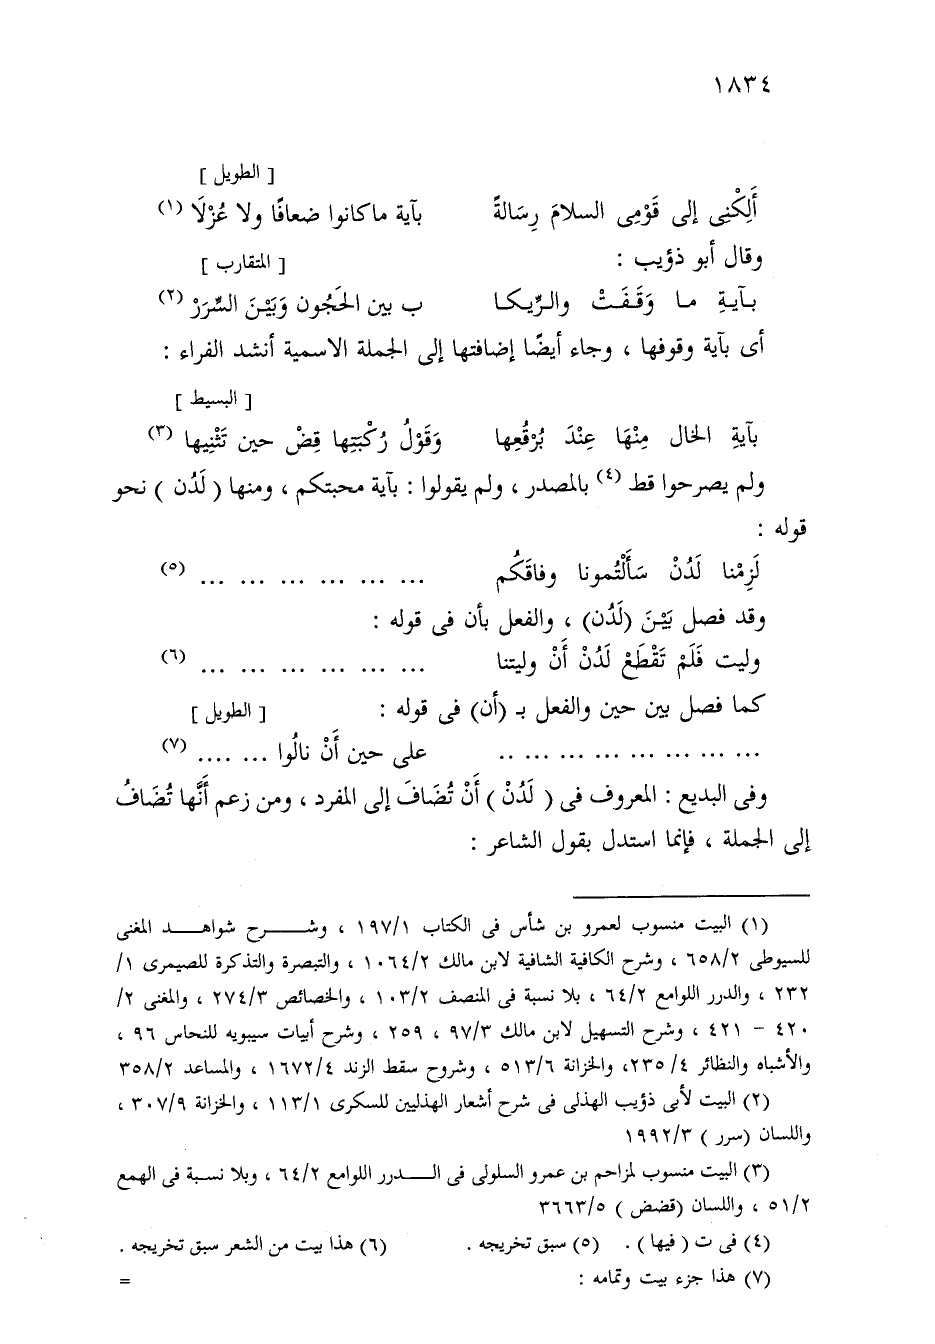 ١٨٣٤
[ الطويل ]
أَلِكْنِى إلى قَوْمِى السلامَ رِسَالةً بآية ماكانوا ضعافًا ولا عُزْلَا (١)
وقال أبو ذؤيب : [ المتقارب ]
بـآيـةِ مـا وَقَـفَـتْ والـرِّيكـا ب بين الحَجُون وَبَيْـنَ السِّرَرْ (٢)
أى بآية وقوفها ، وجاء أيضًا إضافتها إلى الجملة الاسمية أنشد الفراء :
[ البسيط ]
بآيةِ الخال مِنْهَا عِنْدَ بُرْقُعِها وَقَوْلُ رُكْبَتِها قِضْ حين تَثْنِيها (٣)
ولم يصرحوا قط (٤) بالمصدر ، ولم يقولوا : بآية محبتكم ، ومنها ( لَدُن ) نحو
قوله :
لَزِمْنا لَدُنْ سَأَلْتُمونا وفاقَكُم ... ... ... ... ... ... (٥)
وقد فصل بَيْـنَ (لَدُن) ، والفعل بأن فى قوله :
وليت فَلَمْ تَقْطَعْ لَدُنْ أَنْ وليتنا ... ... ... ... ... ... (٦)
كما فصل بين حين والفعل بـ (أن) فى قوله : [ الطويل ]
... ... ... ... ... ... .. على حين أَنْ نالُوا ... .... (٧)
وفى البديع : المعروف فى ( لَدُنْ ) أَنْ تُضَافَ إلى المفرد ، ومن زعم أَنَّها تُضَافُ
إلى الجملة ، فإنما استدل بقول الشاعر :
(١) البيت منسوب لعمرو بن شأس فى الكتاب ١٩٧/١ ، وشـــرح شواهـــد المغنى
للسيوطى ٦٥٨/٢ ، وشرح الكافية الشافية لابن مالك ١٠٦٤/٢ ، والتبصرة والتذكرة للصيمرى ١/
٢٣٢ ، والدرر اللوامع ٦٤/٢ ، بلا نسبة فى المنصف ١٠٣/٢ ، والخصائص ٢٧٤/٣ ، والمغنى ٢/
٤٢٠ - ٤٢١ ، وشرح التسهيل لابن مالك ٩٧/٣ ، ٢٥٩ ، وشرح أبيات سيبويه للنحاس ٩٦ ،
والأشباه والنظائر ٢٣٥/٤، والخزانة ٥١٣/٦ ، وشروح سقط الزند ١٦٧٢/٤ ، والمساعد ٣٥٨/٢
(٢) البيت لأبى ذؤيب الهذلى فى شرح أشعار الهذليين للسكرى ١١٣/١ ، والخزانة ٣٠٧/٩ ،
واللسان (سرر ) ١٩٩٢/٣
(٣) البيت منسوب لمزاحم بن عمرو السلولى فى الـــدرر اللوامع ٦٤/٢ ، وبلا نسبة فى الهمع
٥١/٢ ، واللسان (قضض ) ٣٦٦٣/٥
(٤) فى ت ( فيها ) . (٥) سبق تخريجه . (٦) هذا بيت من الشعر سبق تخريجه .
(٧) هذا جزء بيت وتمامه : =